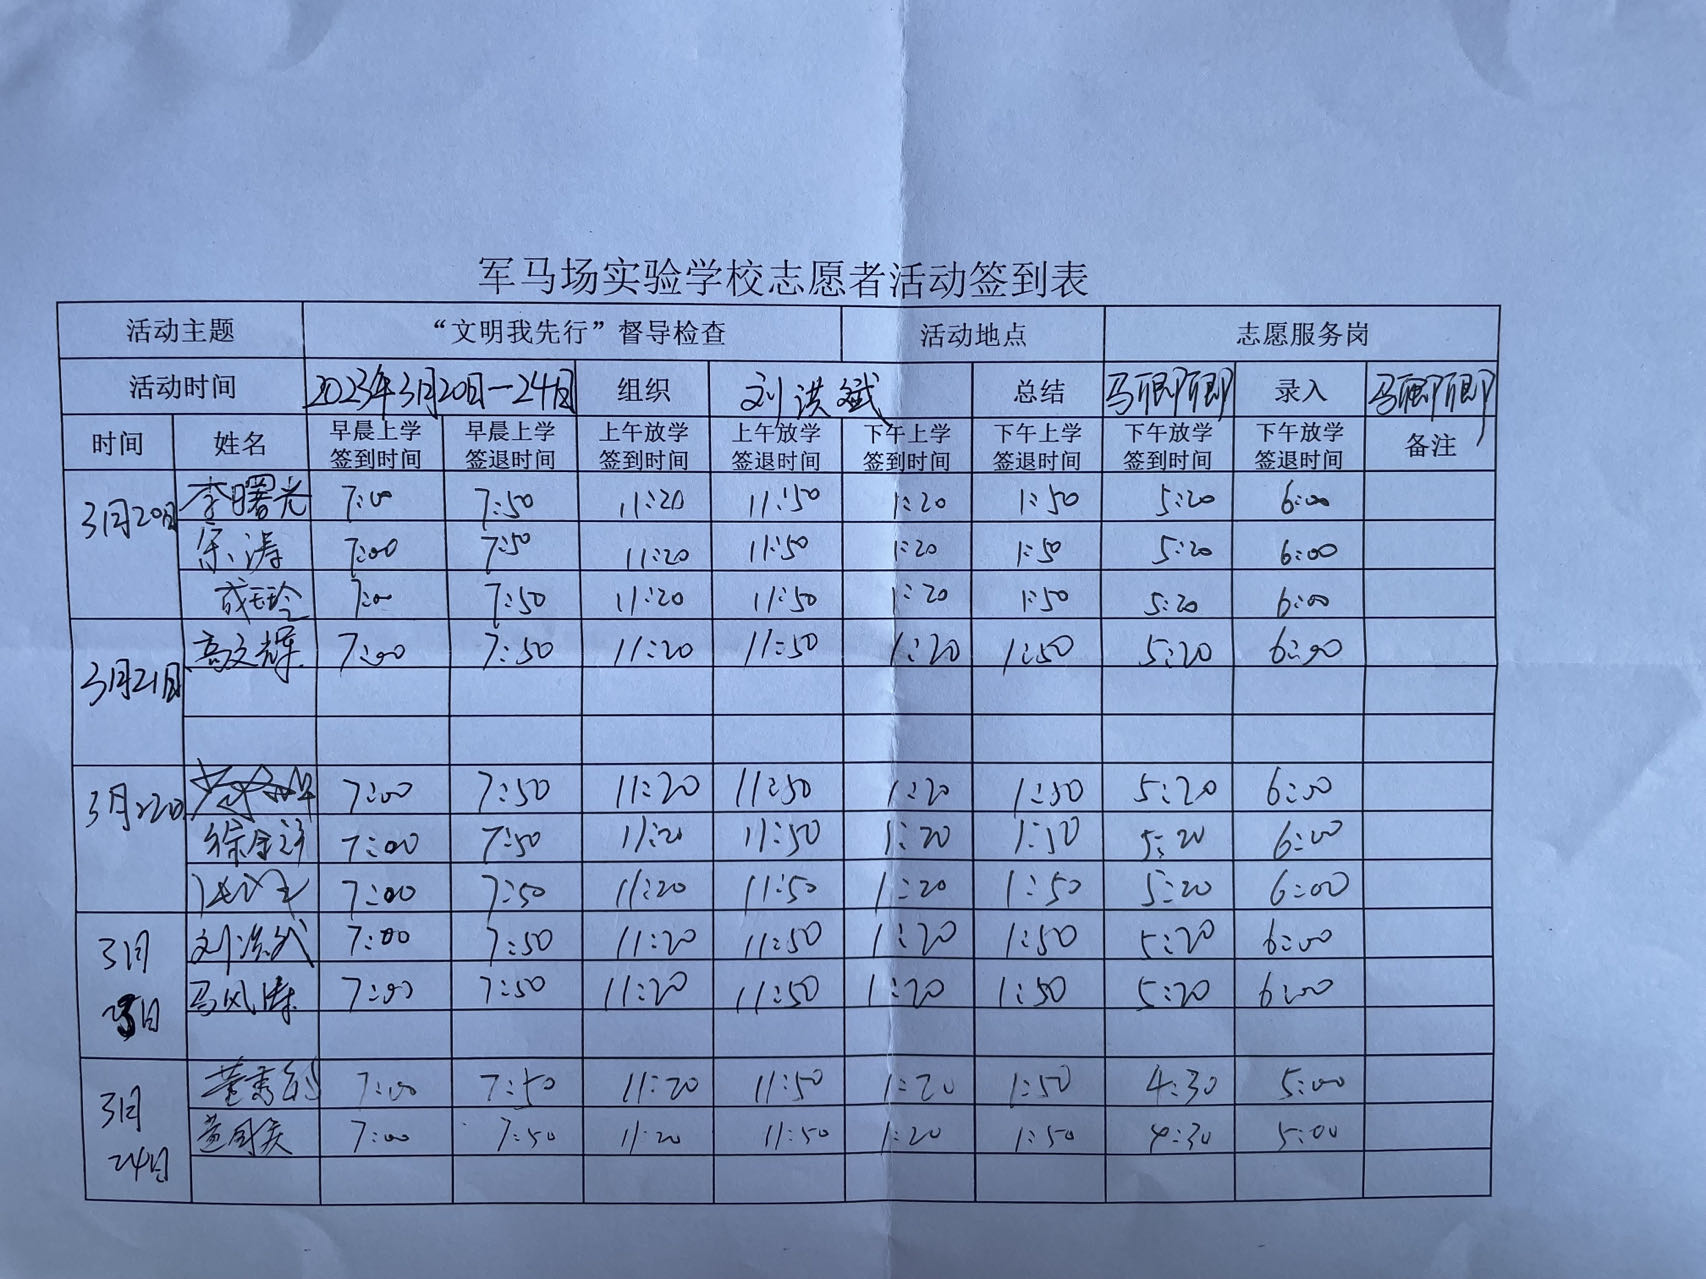 军马场实验学校志愿者活动签到表
活动主题 “文明我先行”督导检查 活动地点 志愿服务岗
活动时间 2023年3月20日—24日 组织 刘洪斌 总结 录入
时间 姓名 早晨上学签到时间 早晨上学签退时间 上午放学签到时间 上午放学签退时间 下午上学签到时间 下午上学签退时间 下午放学签到时间 下午放学签退时间 备注
3月20日 李曙光 7:00 7:50 11:20 11:50 1:20 1:50 5:20 6:00
7:00 7:50 11:20 11:50 1:20 1:50 5:20 6:00
7:00 7:50 11:20 11:50 1:20 1:50 5:20 6:00
3月21日 高文辉 7:00 7:50 11:20 11:50 1:20 1:50 5:20 6:00
3月22日 7:00 7:50 11:20 11:50 1:20 1:50 5:20 6:00
7:00 7:50 11:20 11:50 1:20 1:50 5:20 6:00
7:00 7:50 11:20 11:50 1:20 1:50 5:20 6:00
3月23日 刘洪斌 7:00 7:50 11:20 11:50 1:20 1:50 5:20 6:00
马风涛 7:00 7:50 11:20 11:50 1:20 1:50 5:20 6:00
3月24日 7:00 7:50 11:20 11:50 1:20 1:50 4:30 5:00
7:00 7:50 11:20 11:50 1:20 1:50 4:30 5:00